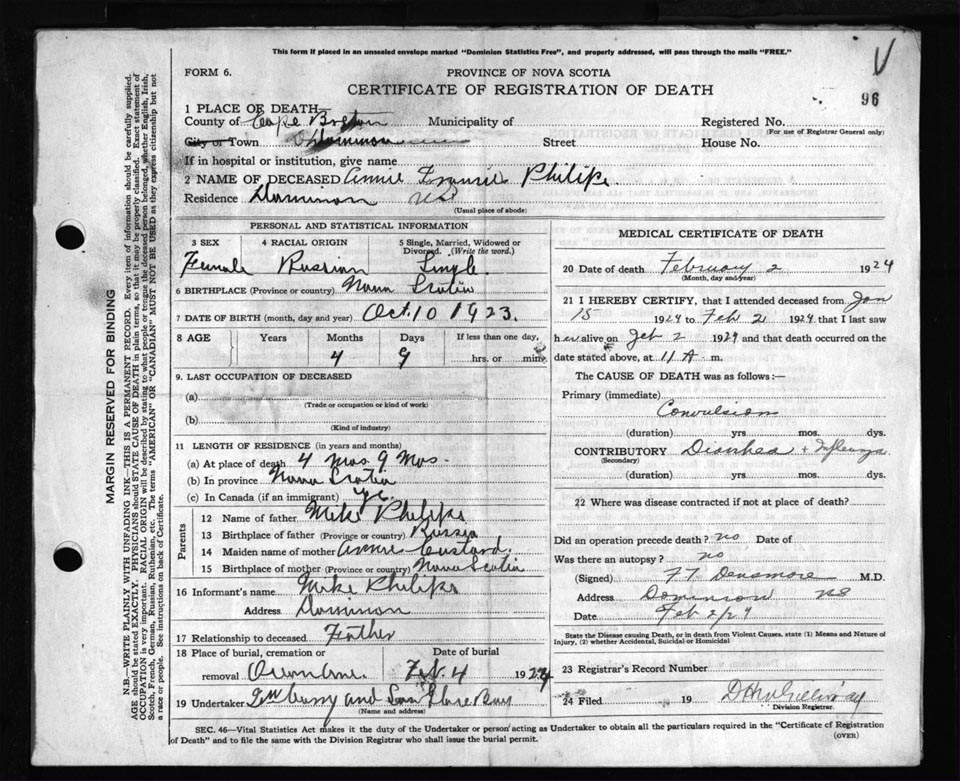 This form if placed in an unsealed envelope marked "Dominion Statistics Free", and properly addressed, will pass through the mails "FREE."
V
FORM 6.
PROVINCE OF NOVA SCOTIA
CERTIFICATE OF REGISTRATION OF DEATH
96
1 PLACE OF DEATH—
County of Cape Breton Municipality of Registered No.
(For use of Registrar General only)
City or Town Dominion Street House No.
If in hospital or institution, give name
2 NAME OF DECEASED Annie Philips
Residence Dominion NS
(Usual place of abode)
PERSONAL AND STATISTICAL INFORMATION
3 SEX 4 RACIAL ORIGIN 5 Single, Married, Widowed or Divorced. (Write the word.)
Female Russian Single
6 BIRTHPLACE (Province or country) Nova Scotia
7 DATE OF BIRTH (month, day and year) Oct. 10 1923.
8 AGE Years Months Days If less than one day,
4 9 hrs. or min.
9. LAST OCCUPATION OF DECEASED
(a)
(Trade or occupation or kind of work)
(b)
(Kind of industry)
11 LENGTH OF RESIDENCE (in years and months)
(a) At place of death 4 Mos 9 Mos.
(b) In province Nova Scotia
(c) In Canada (if an immigrant)
Parents
12 Name of father Mike Philips
13 Birthplace of father (Province or country) Russia
14 Maiden name of mother Annie Custard.
15 Birthplace of mother (Province or country) Nova Scotia
16 Informant's name Mike Philips
Address Dominion
17 Relationship to deceased Father
18 Place of burial, cremation or Date of burial
removal Feb. 4 1924
19 Undertaker and Son Glace Bay
(Name and address)
MEDICAL CERTIFICATE OF DEATH
20 Date of death February 2 1924
(Month, day and year)
21 I HEREBY CERTIFY, that I attended deceased from Jan
15 1924 to Feb 2 1924 that I last saw
h er alive on Feb 2 1924 and that death occurred on the
date stated above, at 11 A m.
The CAUSE OF DEATH was as follows:—
Primary (immediate)
Convulsion
(duration) yrs. mos. dys.
CONTRIBUTORY Diarrhea + Influenza
(Secondary)
(duration) yrs. mos. dys.
22 Where was disease contracted if not at place of death?
Did an operation precede death? no Date of
Was there an autopsy? no
(Signed) F T Densmore M.D.
Address Dominion NS
Date Feb 2/24
State the Disease causing Death, or in death from Violent Causes, state (1) Means and Nature of
Injury, (2) whether Accidental, Suicidal or Homicidal
23 Registrar's Record Number
24 Filed 19 D H McGillivray
Division Registrar.
SEC. 46—Vital Statistics Act makes it the duty of the Undertaker or person acting as Undertaker to obtain all the particulars required in the "Certificate of Registration
of Death" and to file the same with the Division Registrar who shall issue the burial permit.
(OVER)
MARGIN RESERVED FOR BINDING
N.B.—WRITE PLAINLY WITH UNFADING INK—THIS IS A PERMANENT RECORD. Every item of information should be carefully supplied.
AGE should be stated EXACTLY. PHYSICIANS should STATE CAUSE OF DEATH in plain terms, so that it may be properly classified. Exact statement of
OCCUPATION is very important. RACIAL ORIGIN will be described by stating to what people or tongue the deceased person belonged, whether English, Irish,
Scotch, French, German, Russian, Ruthenian, etc. The terms "AMERICAN" OR "CANADIAN" MUST NOT BE USED as they express citizenship but not
a race or people. See instructions on back of Certificate.